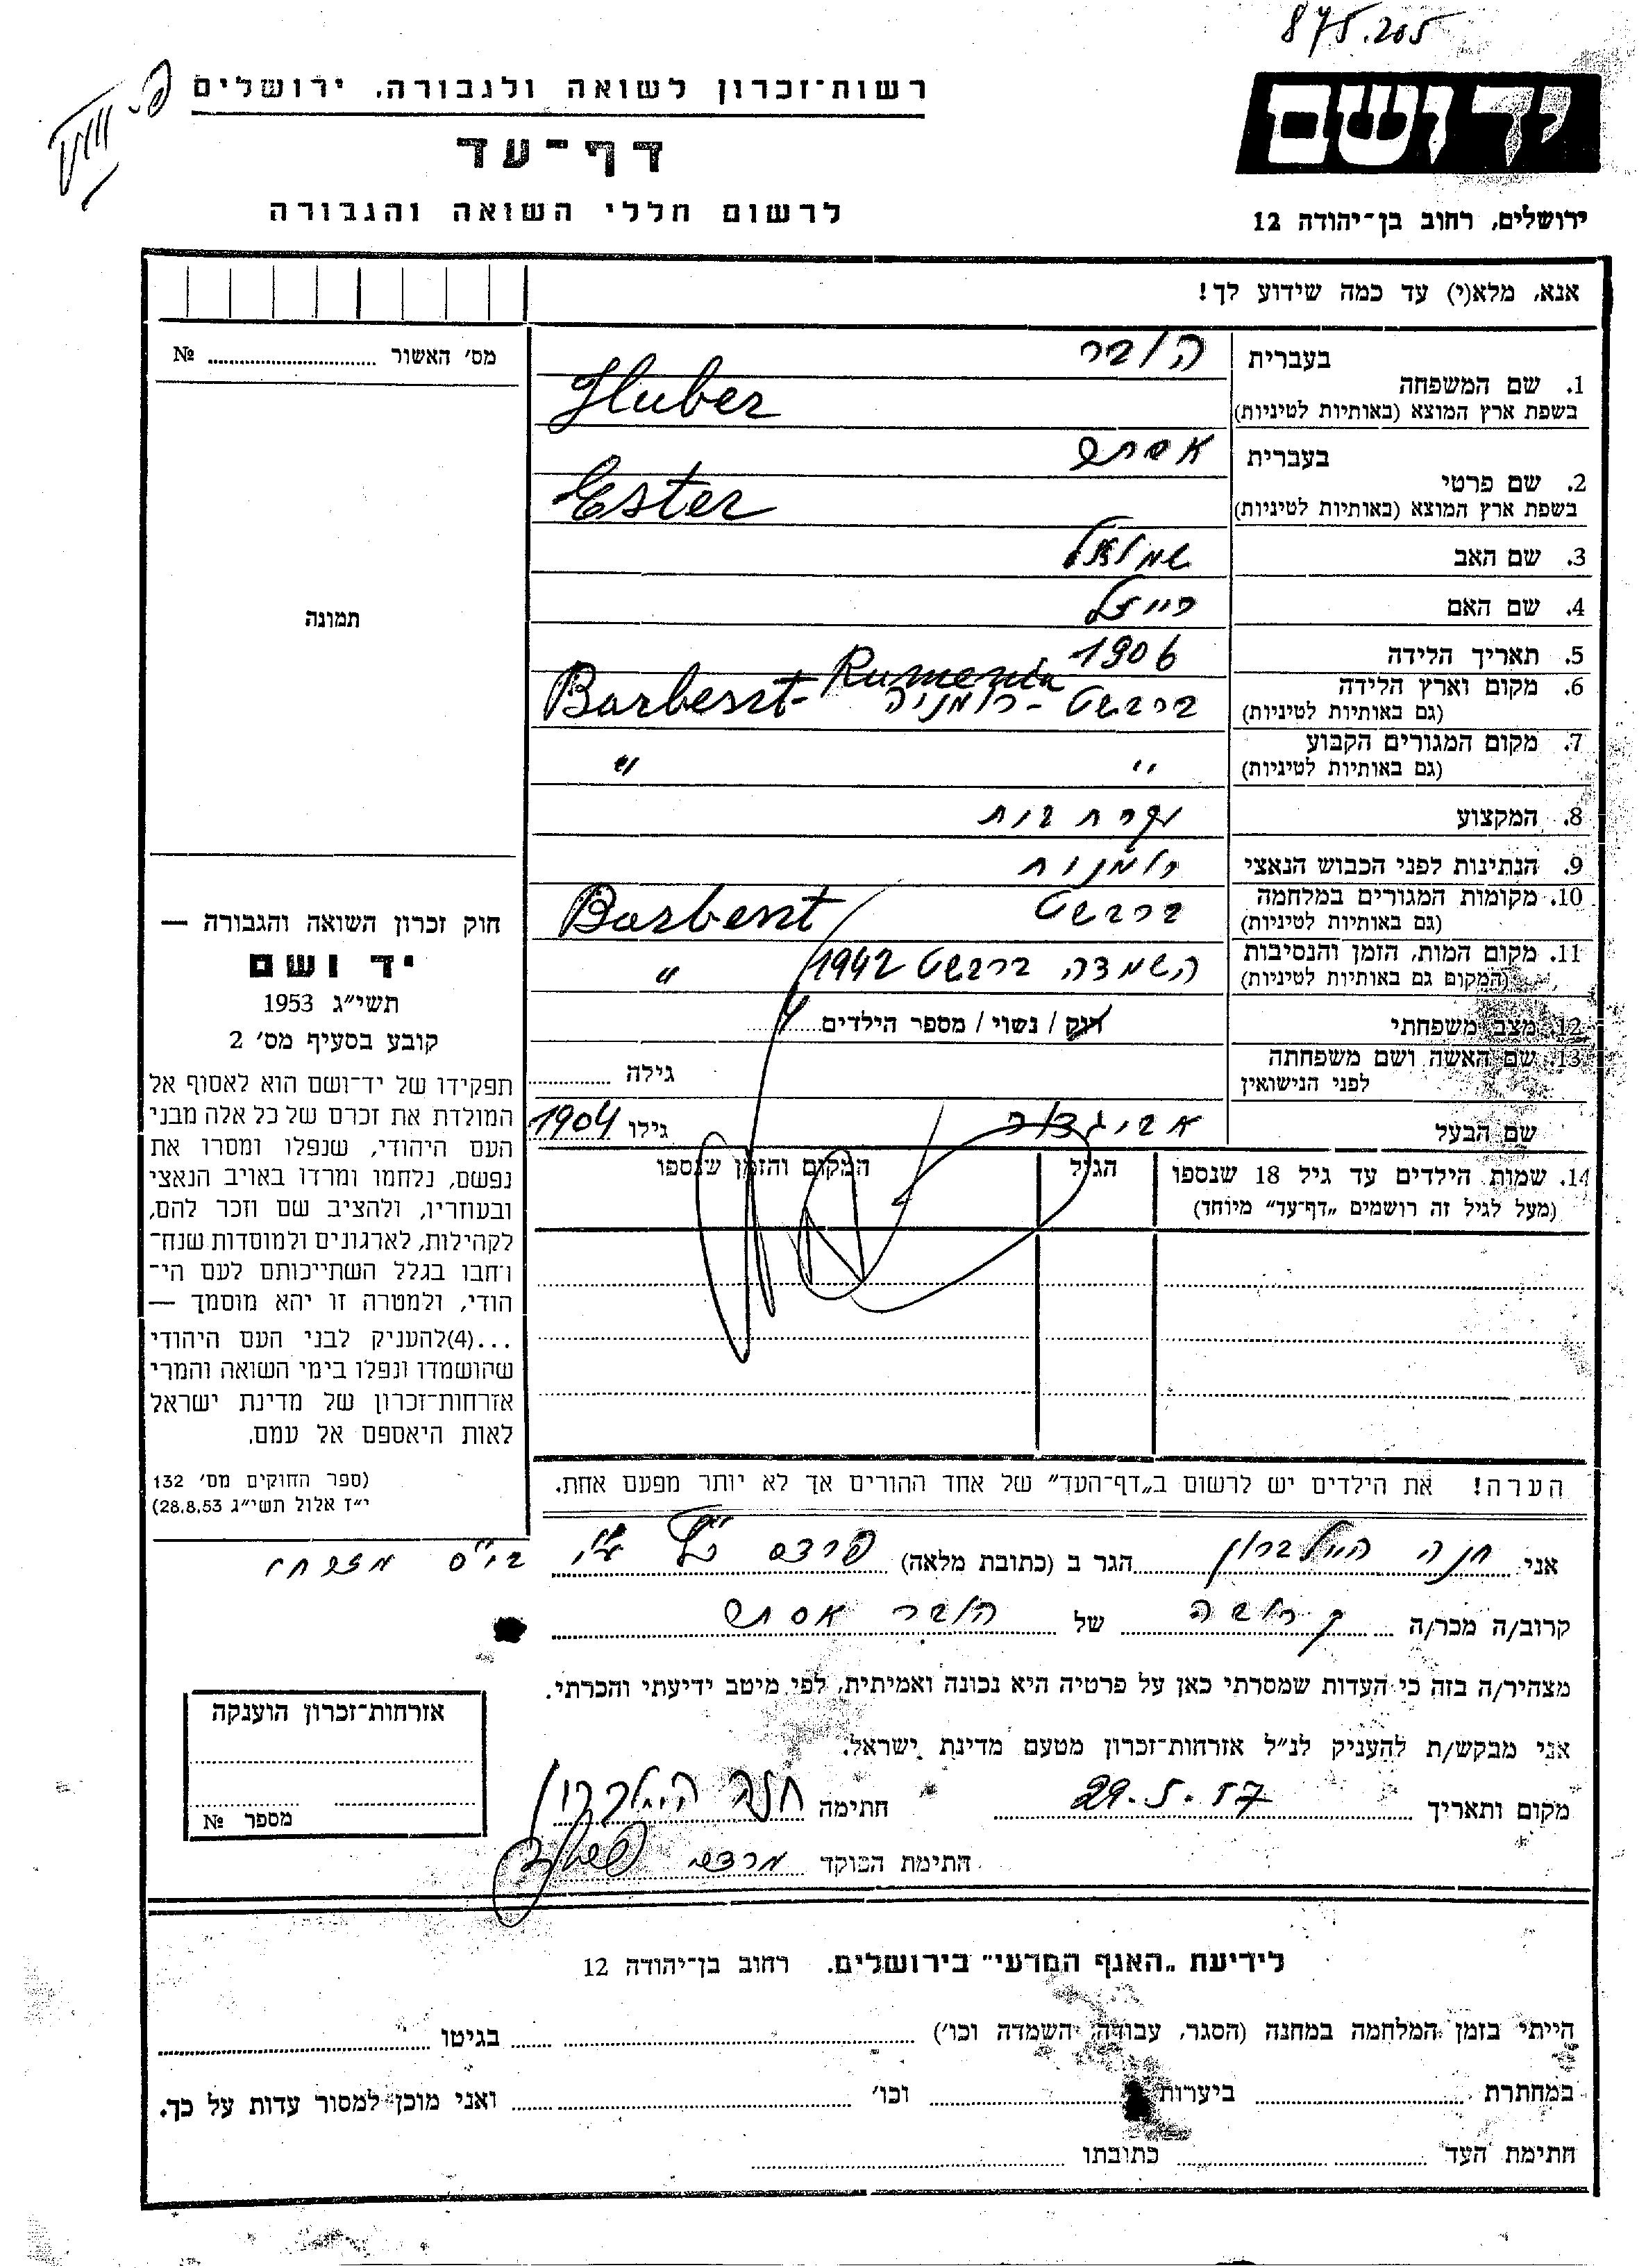 875.205
רשות־זכרון לשואה ולגבורה, ירושלים
יד ושם
דף־עד
לרשום חללי השואה והגבורה
ירושלים, רחוב בן־יהודה 12
אנא, מלא(י) עד כמה שידוע לך!
מס׳ האשור ........ №
1. שם המשפחה
בעברית הובר
בשפת ארץ המוצא (באותיות לטיניות) Huber
2. שם פרטי
בעברית אסתר
בשפת ארץ המוצא (באותיות לטיניות) Ester
3. שם האב שמואל
4. שם האם רייזל
תמונה
5. תאריך הלידה 1906
6. מקום וארץ הלידה ברבשט - רומניה
(גם באותיות לטיניות) Barbeszt - Rumenia
7. מקום המגורים הקבוע ״
(גם באותיות לטיניות) ״
8. המקצוע עקרת בית
9. הנתינות לפני הכבוש הנאצי רומנית
10. מקומות המגורים במלחמה ברבשט
(גם באותיות לטיניות) Barbeszt
11. מקום המות, הזמן והנסיבות השמדה ברבשט 1942
(המקום גם באותיות לטיניות) ״
12. מצב משפחתי רווק / נשוי / מספר הילדים
13. שם האשה ושם משפחתה
לפני הנישואין
גילה ........
שם הבעל אביגדור גילו 1904
14. שמות הילדים עד גיל 18 שנספו הגיל המקום והזמן שנספו
(מעל לגיל זה רושמים „דף־עד״ מיוחד)
חוק זכרון השואה והגבורה —
יד ושם
תשי״ג 1953
קובע בסעיף מס׳ 2
תפקידו של יד־ושם הוא לאסוף אל
המולדת את זכרם של כל אלה מבני
העם היהודי, שנפלו ומסרו את
נפשם, נלחמו ומרדו באויב הנאצי
ובעוזריו, ולהציב שם וזכר להם,
לקהילות, לארגונים ולמוסדות שנח־
רחבו בגלל השתייכותם לעם הי־
הודי, ולמטרה זו יהא מוסמך —
...(4)להעניק לבני העם היהודי
שהושמדו ונפלו בימי השואה והמרי
אזרחות־זכרון של מדינת ישראל
לאות היאספם אל עמם.
(ספר החוקים מס׳ 132
י״ז אלול תשי״ג 28.8.53)
הערה! את הילדים יש לרשום ב„דף־העד״ של אחד ההורים אך לא יותר מפעם אחת.
אני חנה היילברון הגר ב (כתובת מלאה) פרדס בי״ס מזרחי
קרוב/ה מכר/ה קרובה של הובר אסתר
מצהיר/ה בזה כי העדות שמסרתי כאן על פרטיה היא נכונה ואמיתית, לפי מיטב ידיעתי והכרתי.
אני מבקש/ת להעניק לנ״ל אזרחות־זכרון מטעם מדינת ישראל.
מקום ותאריך 29.5.57 חתימה חנה היילברון
חתימת הפוקד מרדכי
אזרחות־זכרון הוענקה
מספר №
לידיעת „האגף המדעי״ בירושלים. רחוב בן־יהודה 12
הייתי בזמן המלחמה במחנה (הסגר, עבודה, השמדה וכו׳) ........ בגיטו ........
במחתרת ........ ביערות ........ וכו׳ ........ ואני מוכן למסור עדות על כך.
חתימת העד ........ כתובתו ........